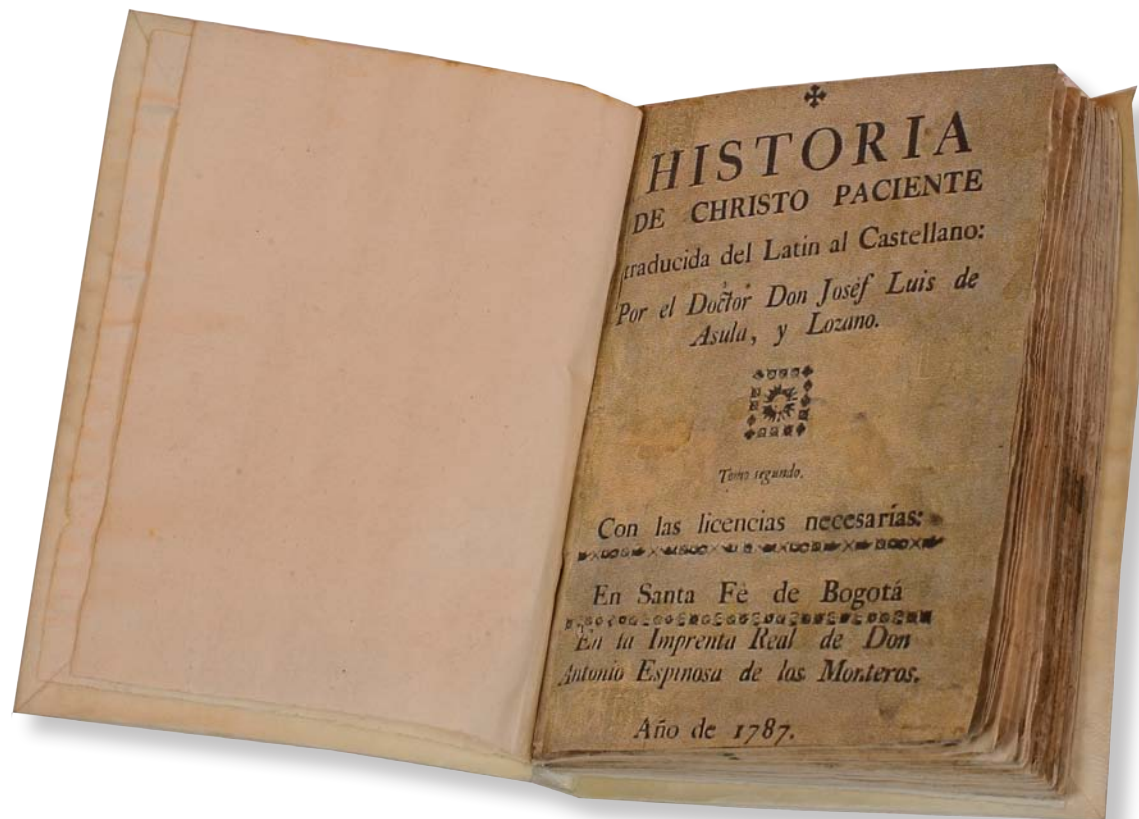 HISTORIA
DE CHRISTO PACIENTE
traducida del Latin al Castellano:
Por el Doctor Don Josèf Luis de
Asula, y Lozano.
Tomo segundo.
Con las licencias necesarías:
En Santa Fè de Bogotá
En la Imprenta Real de Don
Antonio Espinosa de los Monteros.
Año de 1787.